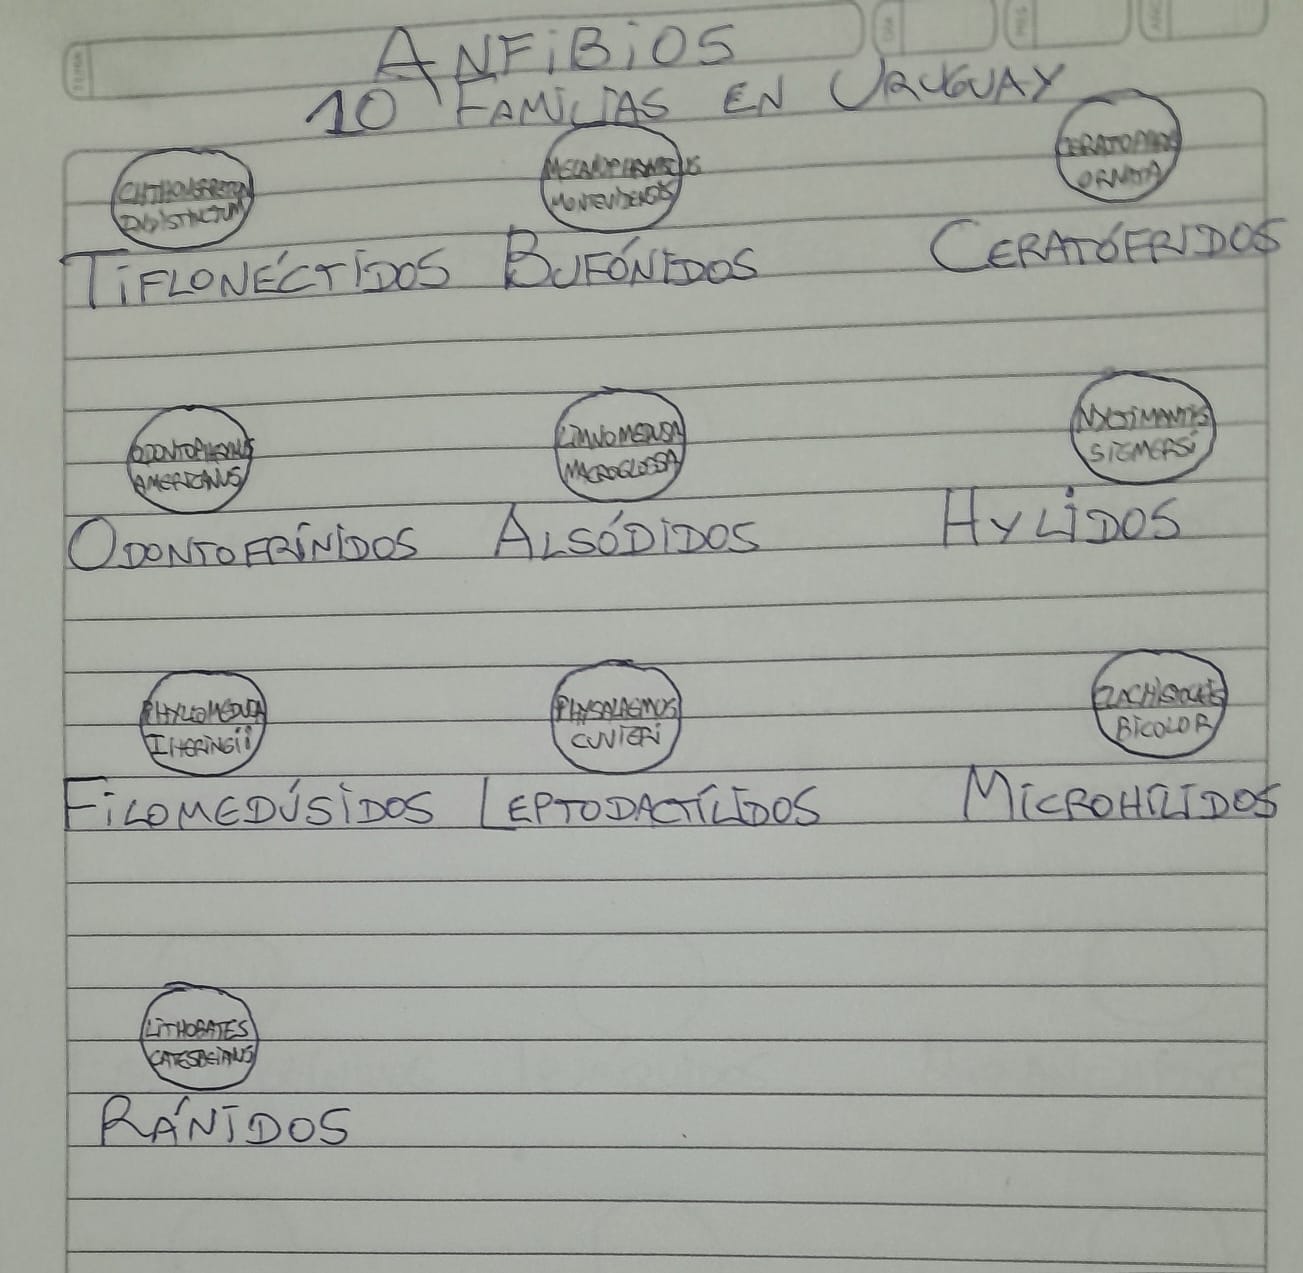 ANFIBIOS
10 FAMILIAS EN URUGUAY
INDISTINCTUM
MONTEVIDENSIS
ORNATA
TIFLONÉCTIDOS BUFÓNIDOS CERATÓFRIDOS
ODONTOPHRYNUS AMERICANUS
LIMNOMEDUSA MACROGLOSSA
NYCTIMANTIS SIEMERSI
ODONTOFRÍNIDOS ALSÓDIDOS HYLIDOS
PHYLLOMEDUSA IHERINGII
PHYSALAEMUS CUVIERI
BICOLOR
FILOMEDÚSIDOS LEPTODACTÍLIDOS MICROHÍLIDOS
LITHOBATES
CATESBEIANUS
RÁNIDOS